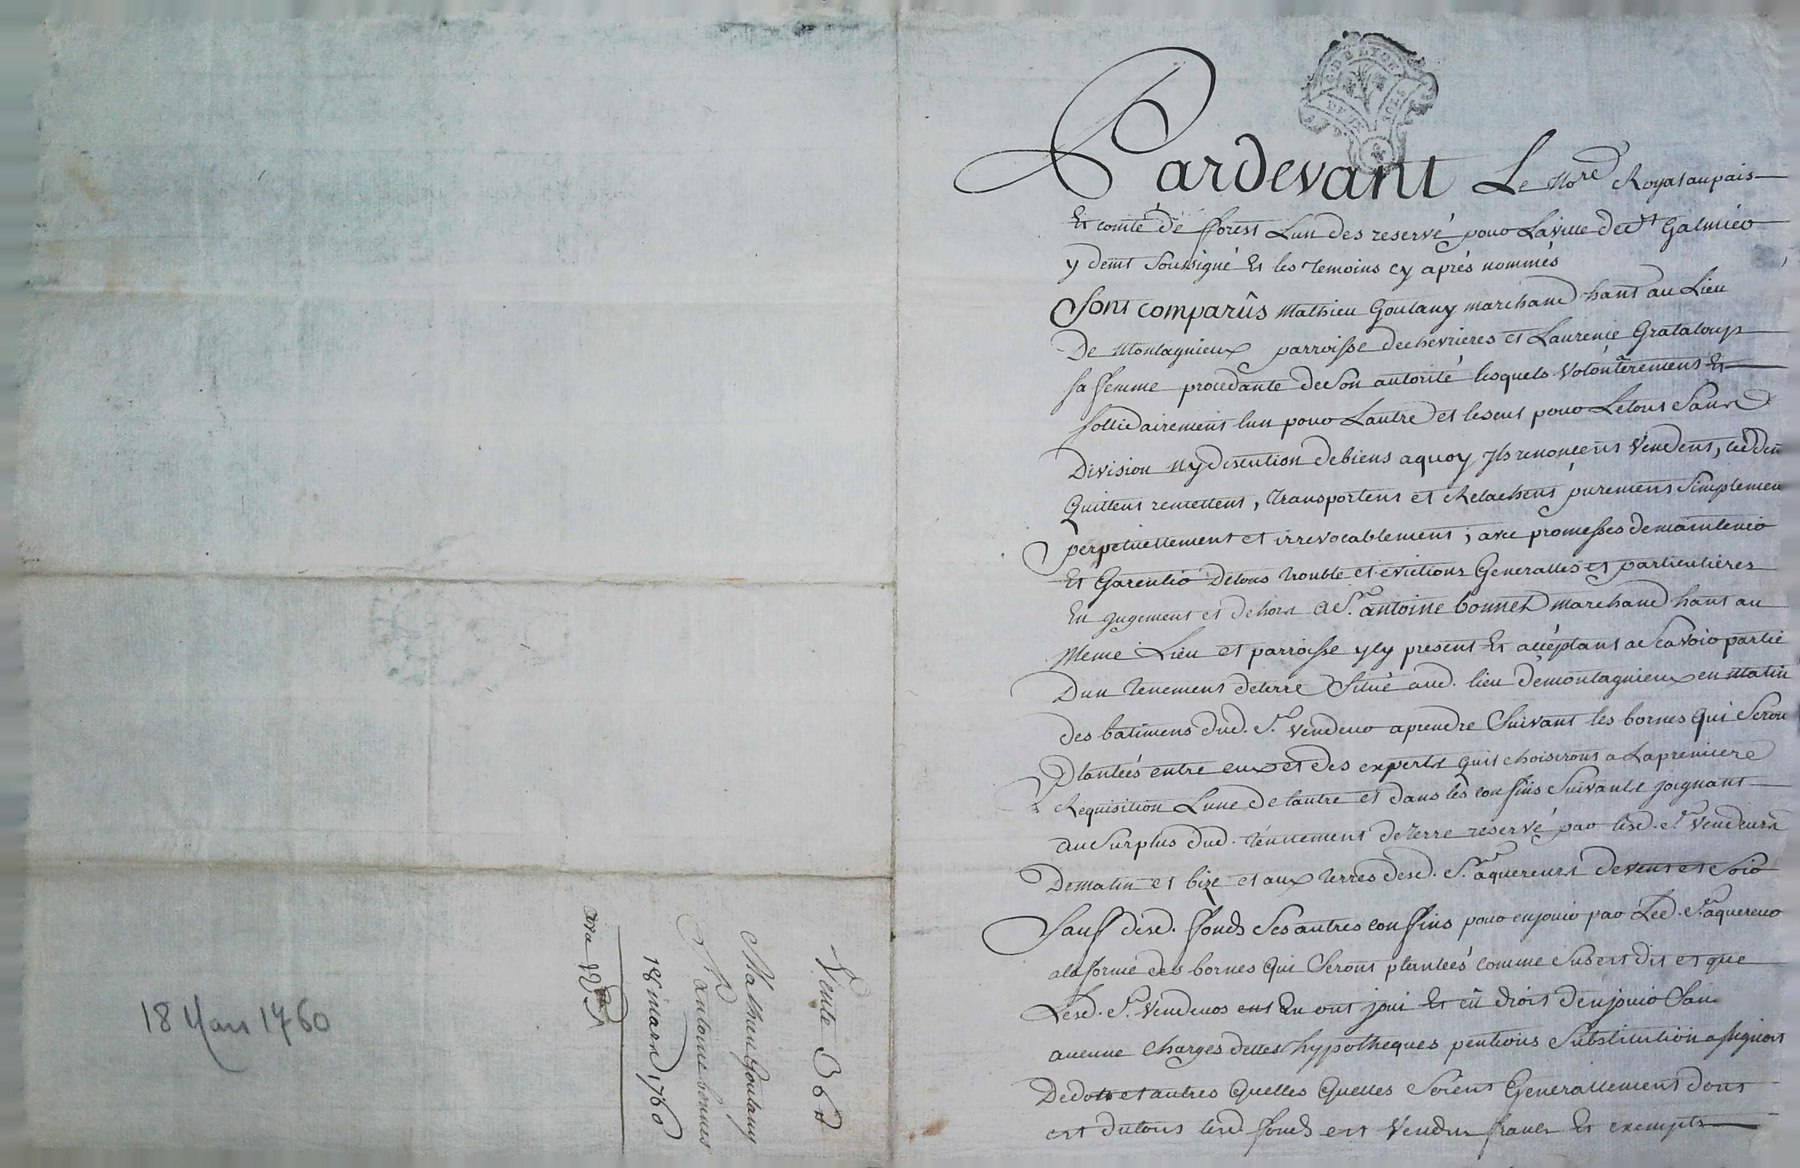 18 Mars 1760
Vente 36 #
Mathieu Goutany
A Sr antoine bonnet
18 mars 1760
Pardevant Le Nore Royal au pais
Et comté de fforest Lun des reservé pour La ville de St Galmier
y demt Soussigné Et les Temoins cy aprés nommés
Sont comparûs Mathieu Goutany marchand hant au Lieu
De Montagnieux parroisse de chevrieres et Laurence Grataloup
sa femme procedante de Son autorité lesquels volontèrement Et
sollidairement lun pour Lautre et le seul pour Le tout Sans
Division ny discution de biens aquoy Ils renoncent Vendent, ceddent
Quittent remettent, transportent et Relachent purement Simplement
perpetuellement et irrevocablement; avec promesses de maintenir
Et Garentir De tous trouble et evictions Generalles et particulières
En jugement et dehors A Sr. antoine bonnet marchand hant au
Meme Lieu et parroisse ycy present Et accéptant a Scavoir partie
Dun tenement de terre Situé aud. lieu de montagnieux en matin
des batimens dud. Sr. Vendeur a prendre Suivant les bornes qui Seron
Plantées entre eux et des experts quils choisiront a La premiere
Requisition Lune de lautre et dans les confins Suivants joignant
au Surplus dud. tennement de terre reservé par lesd. Sr. Vendeurs
De matin et bize et aux terres desd. Sr. aquereurs de vent et Soir
Sauf desd. fonds Ses autres confins pour en jouir par Led. Sr. aquereur
a la forme des bornes qui Seront plantées comme Sus est dit et que
Lesd. Sr. Vendeurs en ont joui Et eü droit den jouir San
aucune charges dettes hypotheques pentions Substitution assignat
De dots et autres Quelles Quelles Soient Generallement dont
est du tout lesd. fonds est Vendu franc Et exempts